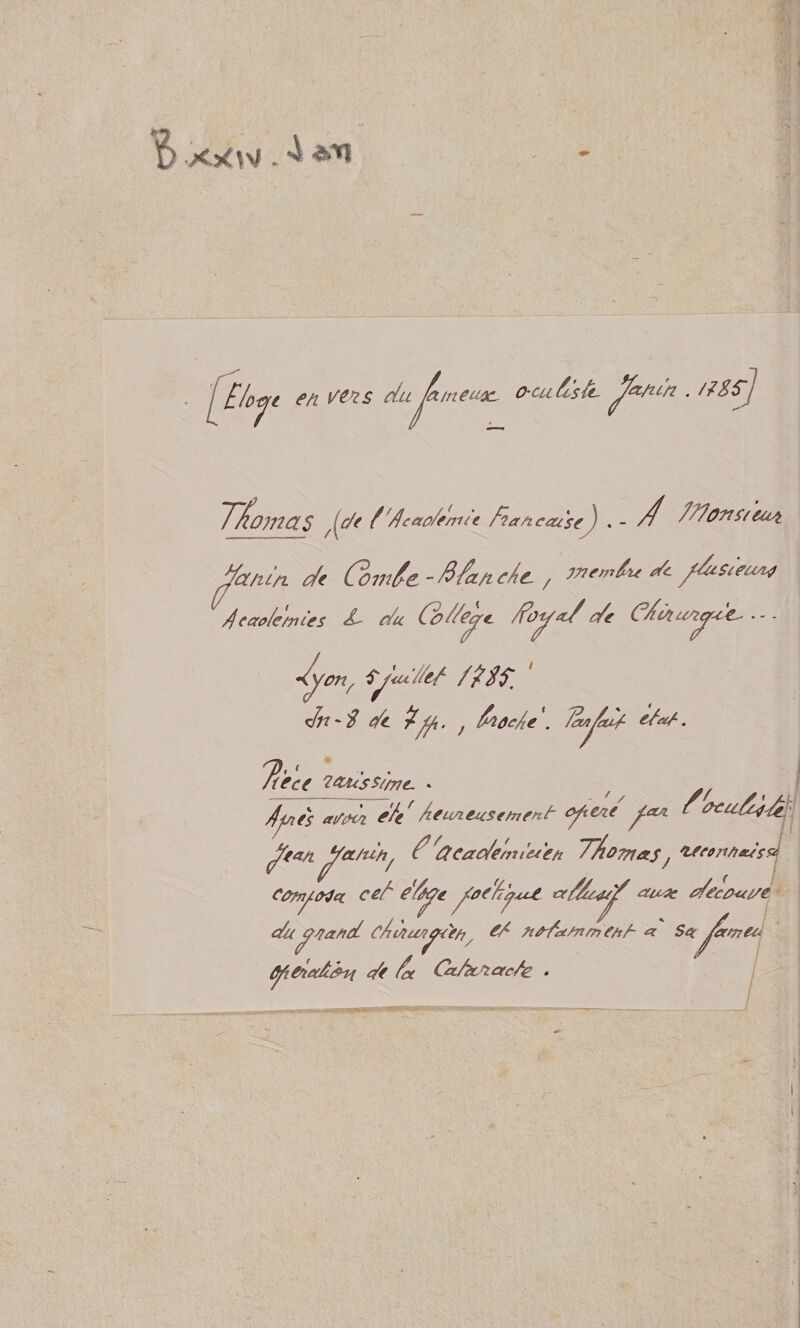 B xxiv. Jan
[Eloge en vers du fameux oculiste Janin. 1785]
Thomas (de l'Académie Francaise).- A Monsieur
Janin de Combe-Blanche, membre de plusieurs
Académies & du College Royal de Chirurgie...
Lyon, 8 juillet 1785.
In-8 de 7 pp., broché. Parfait état.
Pièce rarissime.
Après avoir été heureusement opéré par l'oculiste
Jean Janin, l'académicien Thomas, reconnaiss
composa cet éloge poétique allusif aux découve
du grand chirurgien, et notamment a sa fameu
opération de la Cataracte.